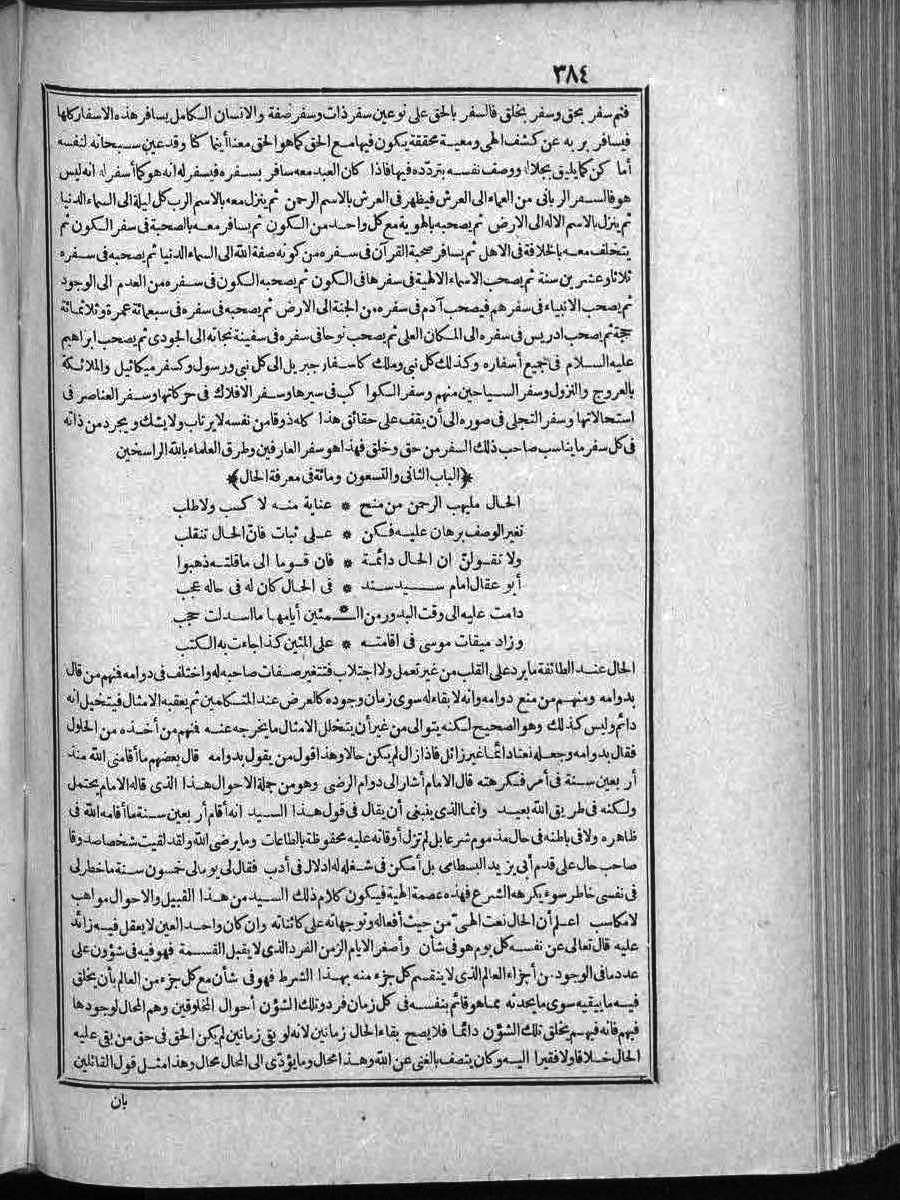 ٣٨٤
فثم سفر بحق وسفر بخلق فالسفر بالحق على نوعين سفر ذات وسفر صفة والانسان الكامل يسافر هذه الاسفار كلها
فيسافر بربه عن كشف الهى ومعية محققة يكون فيها مع الحق كما هو الحق معنا أينما كنا وقد عين سبحانه لنفسه
أما كن كما يليق بجلاله ووصف نفسه بتردّده فيها فاذا كان العبد معه سافر بسفره فسفر له انه هو كما أسفر له انه ليس
هو فالسفر الربانى من العماء الى العرش فيظهر فى العرش بالاسم الرحمن ثم ينزل معه بالاسم الرب كل ليلة الى السماء الدنيا
ثم ينزل بالاسم الاله الى الارض ثم يصحبه بالهوية مع كل واحد من الكون ثم يسافر معه بالصحبة فى سفر الكون ثم
يتخلف معه بالخلافة فى الاهل ثم يسافر صحبة القرآن فى سفره من كونه صفة الله الى السماء الدنيا ثم يصحبه فى سفره
ثلاثا وعشرين سنة ثم يصحب الاسماء الالهية فى سفرها فى الكون ثم يصحبه الكون فى سفره من العدم الى الوجود
ثم يصحب الانبياء فى سفرهم فيصحب آدم فى سفره من الجنة الى الارض ثم يصحبه فى سفره فى سبعمائة عمرة وثلاثمائة
حجة ثم يصحب ادريس فى سفره الى المكان العلى ثم يصحب نوحا فى سفره فى سفينة نجاته الى الجودى ثم يصحب ابراهيم
عليه السلام فى جميع أسفاره وكذلك كل نبى وملك كاسفار جبريل الى كل نبى ورسول وكسفر ميكائيل والملائكة
بالعروج والنزول وسفر السياحين منهم وسفر الكواكب فى سيرها وسفر الافلاك فى حركاتها وسفر العناصر فى
استحالاتها وسفر التجلى فى صوره الى أن يقف على حقائق هذا كله ذوقا من نفسه لا يرتاب ولا يشك ويجرد من ذاته
فى كل سفر ما يناسب صاحب ذلك السفر من حق وخلق فهذا هو سفر العارفين وطرق العلماء بالله الراسخين
﴿الباب الثانى والتسعون ومائة فى معرفة الحال﴾
الحال ما يهب الرحمن من منح * عناية منه لا كسب ولا طلب
تغير الوصف برهان عليه فكن * على ثبات فانّ الحال تنقلب
ولا تقولنّ ان الحال دائمة * فان قوما الى ما قلته ذهبوا
أبو عقال امام سيد سند * فى الحال كان له فى حاله عجب
دامت عليه الى وقت البدور من الـ * ـمئين أيامها ما اسدلت حجب
وزاد ميقات موسى فى اقامته * على المئين كذا جاءت به الكتب
الحال عند الطائفة ما يرد على القلب من غير تعمل ولا اجتلاب فتتغير صفات صاحبه له واختلف فى دوامه فنهم من قال
بدوامه ومنهم من منع دوامه وانه لا بقاء له سوى زمان وجوده كالعرض عند المتكلمين ثم يعقبه الامثال فيتخيل انه
دائم وليس كذلك وهو الصحيح لكنه يتوالى من غير أن يتخلل الامثال ما يخرجه عنه فنهم من أخذه من الحلول
فقال بدوامه وجعله نعتا دائما غير زائل فاذا زال لم يكن حالا وهذا قول من يقول بدوامه قال بعضهم ما أقامنى الله منذ
أربعين سنة فى أمر فكرهته قال الامام أشار الى دوام الرضى وهو من جملة الاحوال هذا الذى قاله الامام يحتمل
ولكنه فى طريق الله بعيد وانما الذى ينبغى أن يقال فى قول هذا السيد انه أقام أربعين سنة ما أقامه الله فى
ظاهره ولا فى باطنه فى حال مذموم شرعا بل لم تزل أوقاته عليه محفوظة بالطاعات وما يرضى الله ولقد لقيت شخصا صدوقا
صاحب حال على قدم أبى يزيد البسطامى بل أمكن فى شغله له ادلال فى أدب فقال لى يوما لى خمسون سنة ما خطر لى
فى نفسى خاطر سوء يكرهه الشرع فهذه عصمة الهية فيكون كلام ذلك السيد من هذا القبيل والاحوال مواهب
لا مكاسب اعلم أن الحال نعت الهىّ من حيث أفعاله وتوجهاته على كائناته وان كان واحد العين لا يعقل فيه زائد
عليه قال تعالى عن نفسه كل يوم هو فى شأن وأصغر الايام الزمن الفرد الذى لا يقبل القسمة فهو فيه فى شؤون على
عدد ما فى الوجود من أجزاء العالم الذى لا ينقسم كل جزء منه بهذا الشرط فهو فى شأن مع كل جزء من العالم بأن يخلق
فيه ما يبقيه سوى ما يحدثه مما هو قائم بنفسه فى كل زمان فرد وتلك الشؤن أحوال المخلوقين وهم المحال لوجودها
فيهم فانه فيهم يخلق تلك الشؤن دائما فلا يصح بقاء الحال زمانين لانه لو بقى زمانين لم يكن الحق فى حق من بقى عليه
الحال خلاقا ولا فقيرا اليه وكان يتصف بالغنى عن الله وهذا محال وما يؤدّى الى المحال محال وهذا مثل قول القائلين
بان